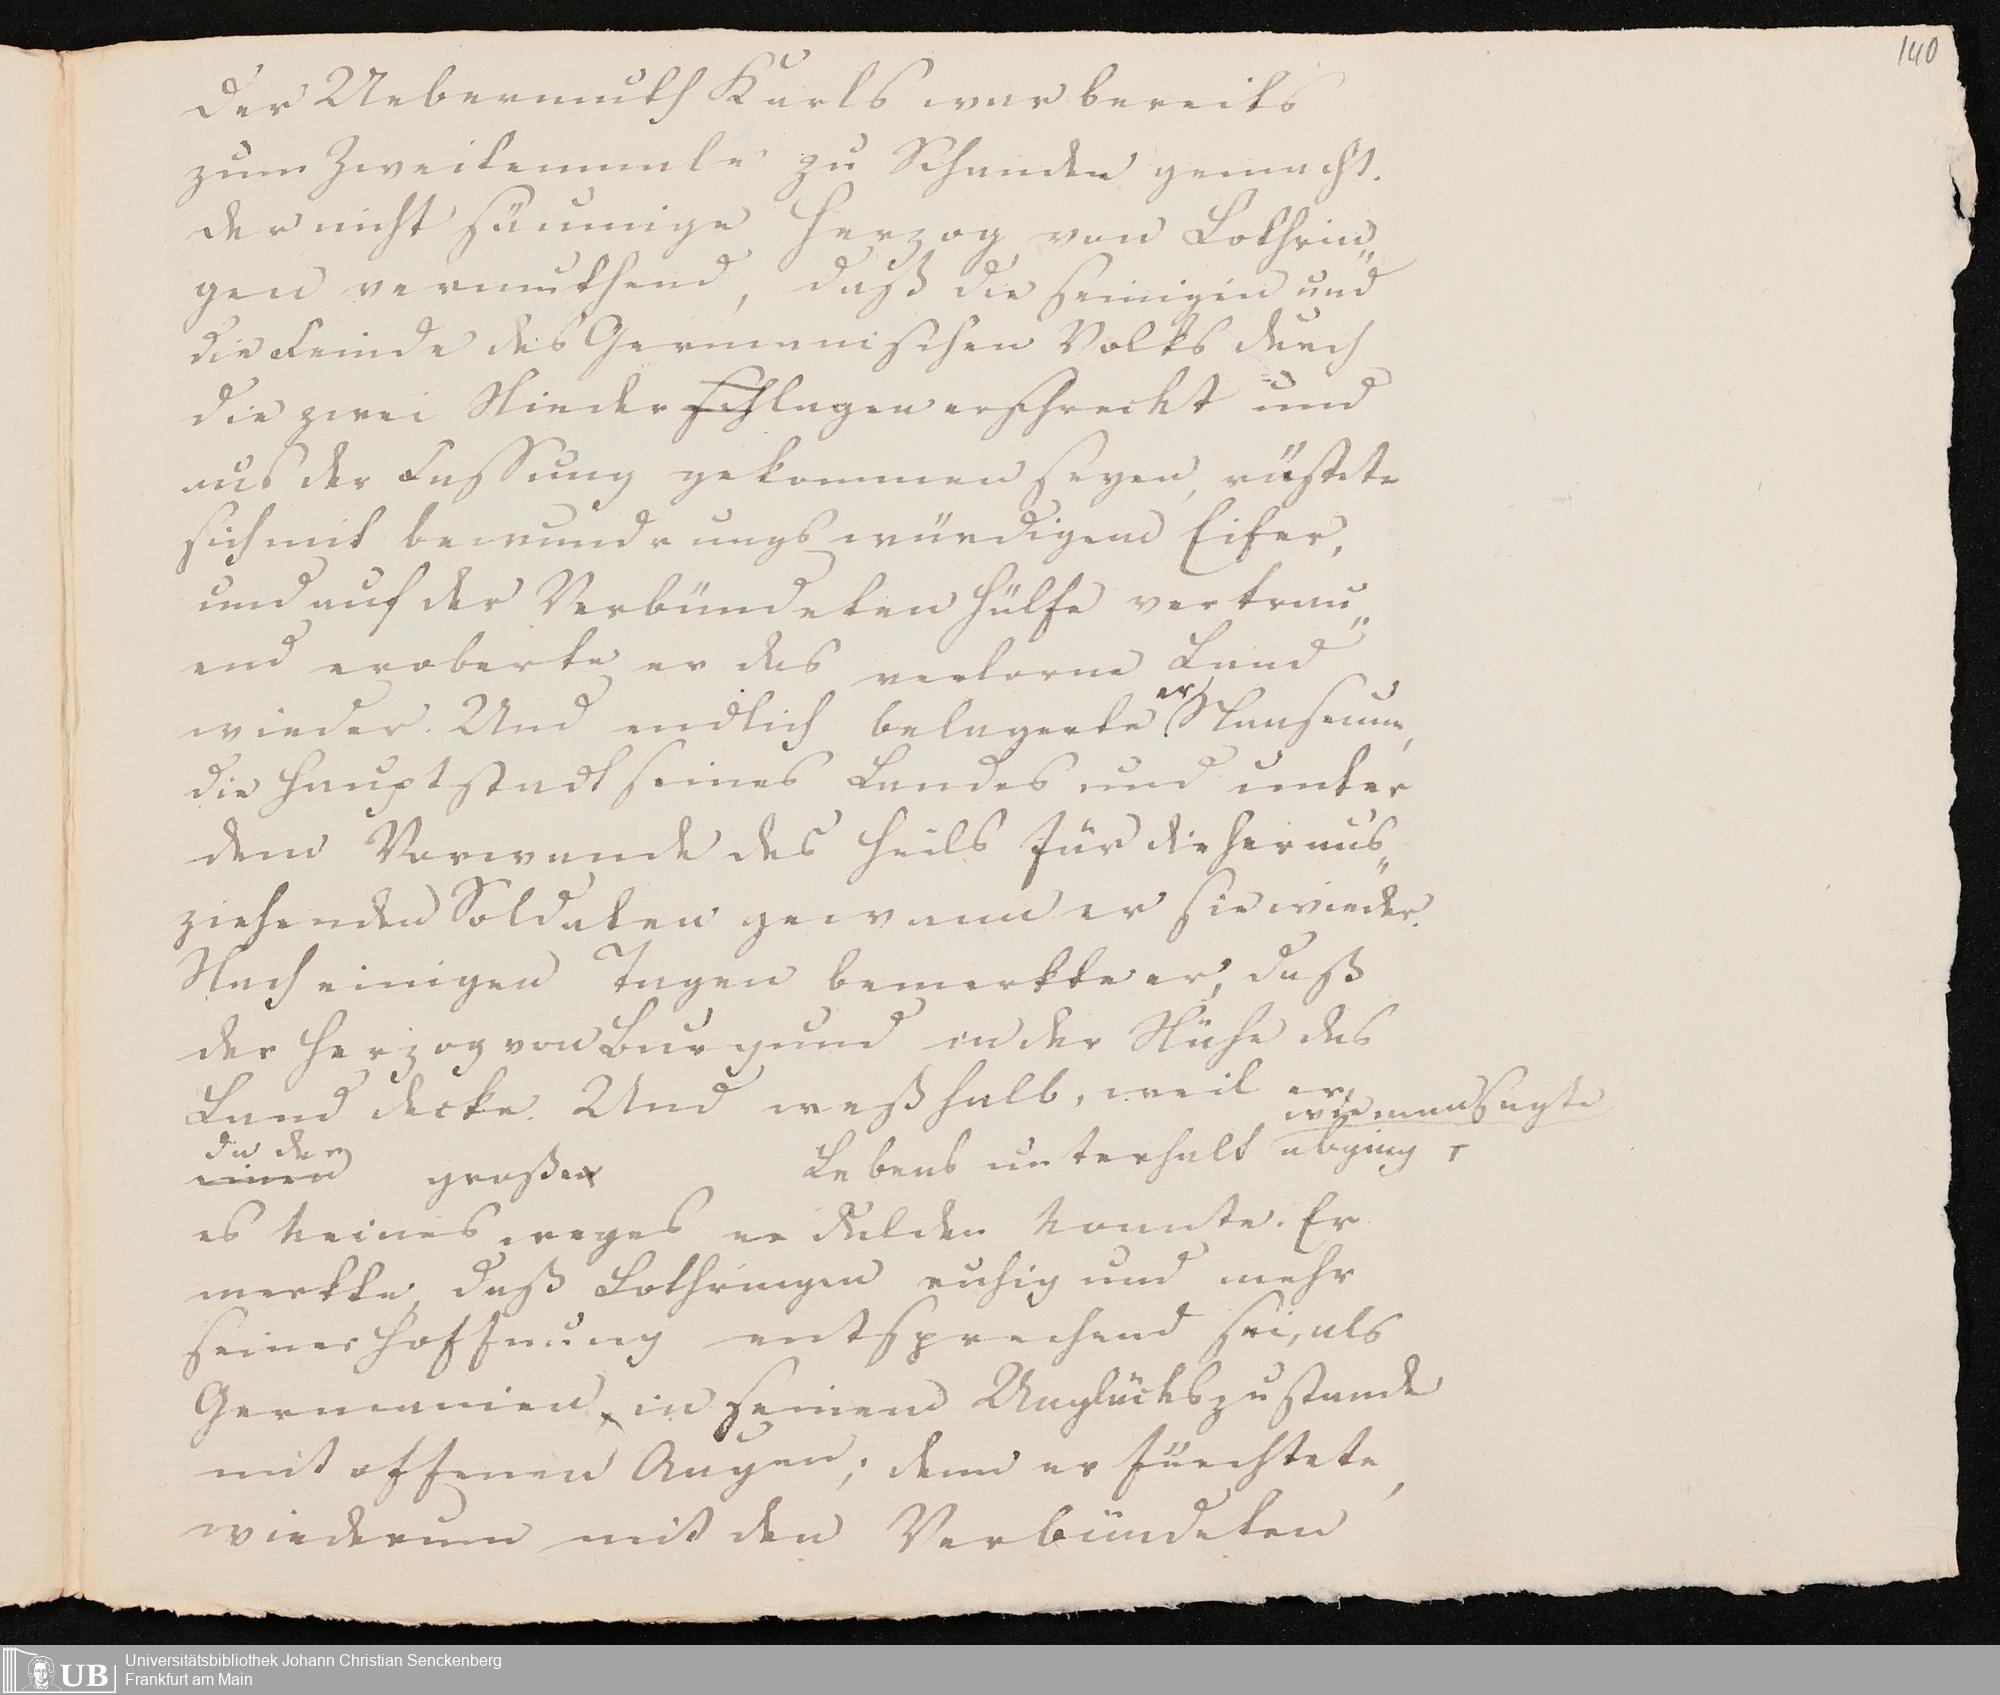 140
Der Uebermuth Karls war bereits
zum Zweitenmale zu Schanden gemacht.
der nicht säumige Herzog von Lothrin„
gen vermuthend, daß die seinigen und
die Feinde des Germanischen Volks durch
die zwei Niederschlagen erschreckt und
aus der Fassung gekommen seyen, rüstete
sich mit bewundrungswürdigem Eifer,
und auf der Verbündeten Hülfe vertrau„
end eroberte er das verlorne Land
wieder. Und endlich belagerte er
die Hauptstadt seines Landes und unter
dem Vorwande des Heils für die heraus„
ziehenden Soldaten gewann er sie wieder.
Nach einigen Tagen bemerkte er, daß
der Herzog von Burgund in der Nähe das
Land decke. Und weßhalb, weil er,
wie man sagte
da der
einen großen Lebensunterhalt abging
es keineswegs erdulden konnte. Er
merkte, daß Lothringen ruhig und mehr
seiner Hoffnung entsprechend sei, als
Germanien, in seinem Unglückszustande
mit offenen Augen; denn er fürchtete,
wiederum mit den Verbündeten
UB
Universitätsbibliothek Johann Christian Senckenberg
Frankfurt am Main